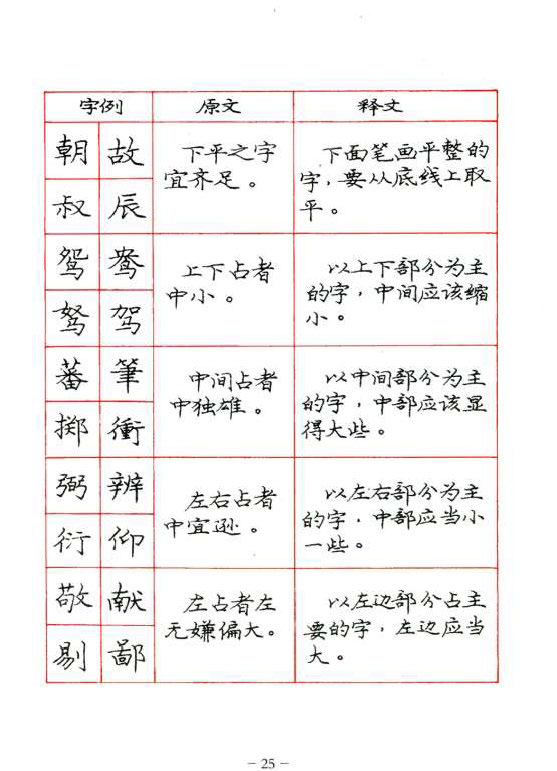 字例 原文 释文
朝 故
叔 辰
下平之字
宜齐足。
下面笔画平整的
字，要从底线上取
平。
鸳 鸯
驽 驾
上下占者
中小。
以上下部分为主
的字，中间应该缩
小。
蕃 筆
掷 衝
中间占者
中独雄。
以中间部分为主
的字，中部应该显
得大些。
弼 辨
衍 仰
左右占者
中宜逊。
以左右部分为主
的字，中部应当小
一些。
敬 献
剔 鄙
左占者左
无嫌偏大。
以左边部分占主
要的字，左边应当
大。
- 25 -